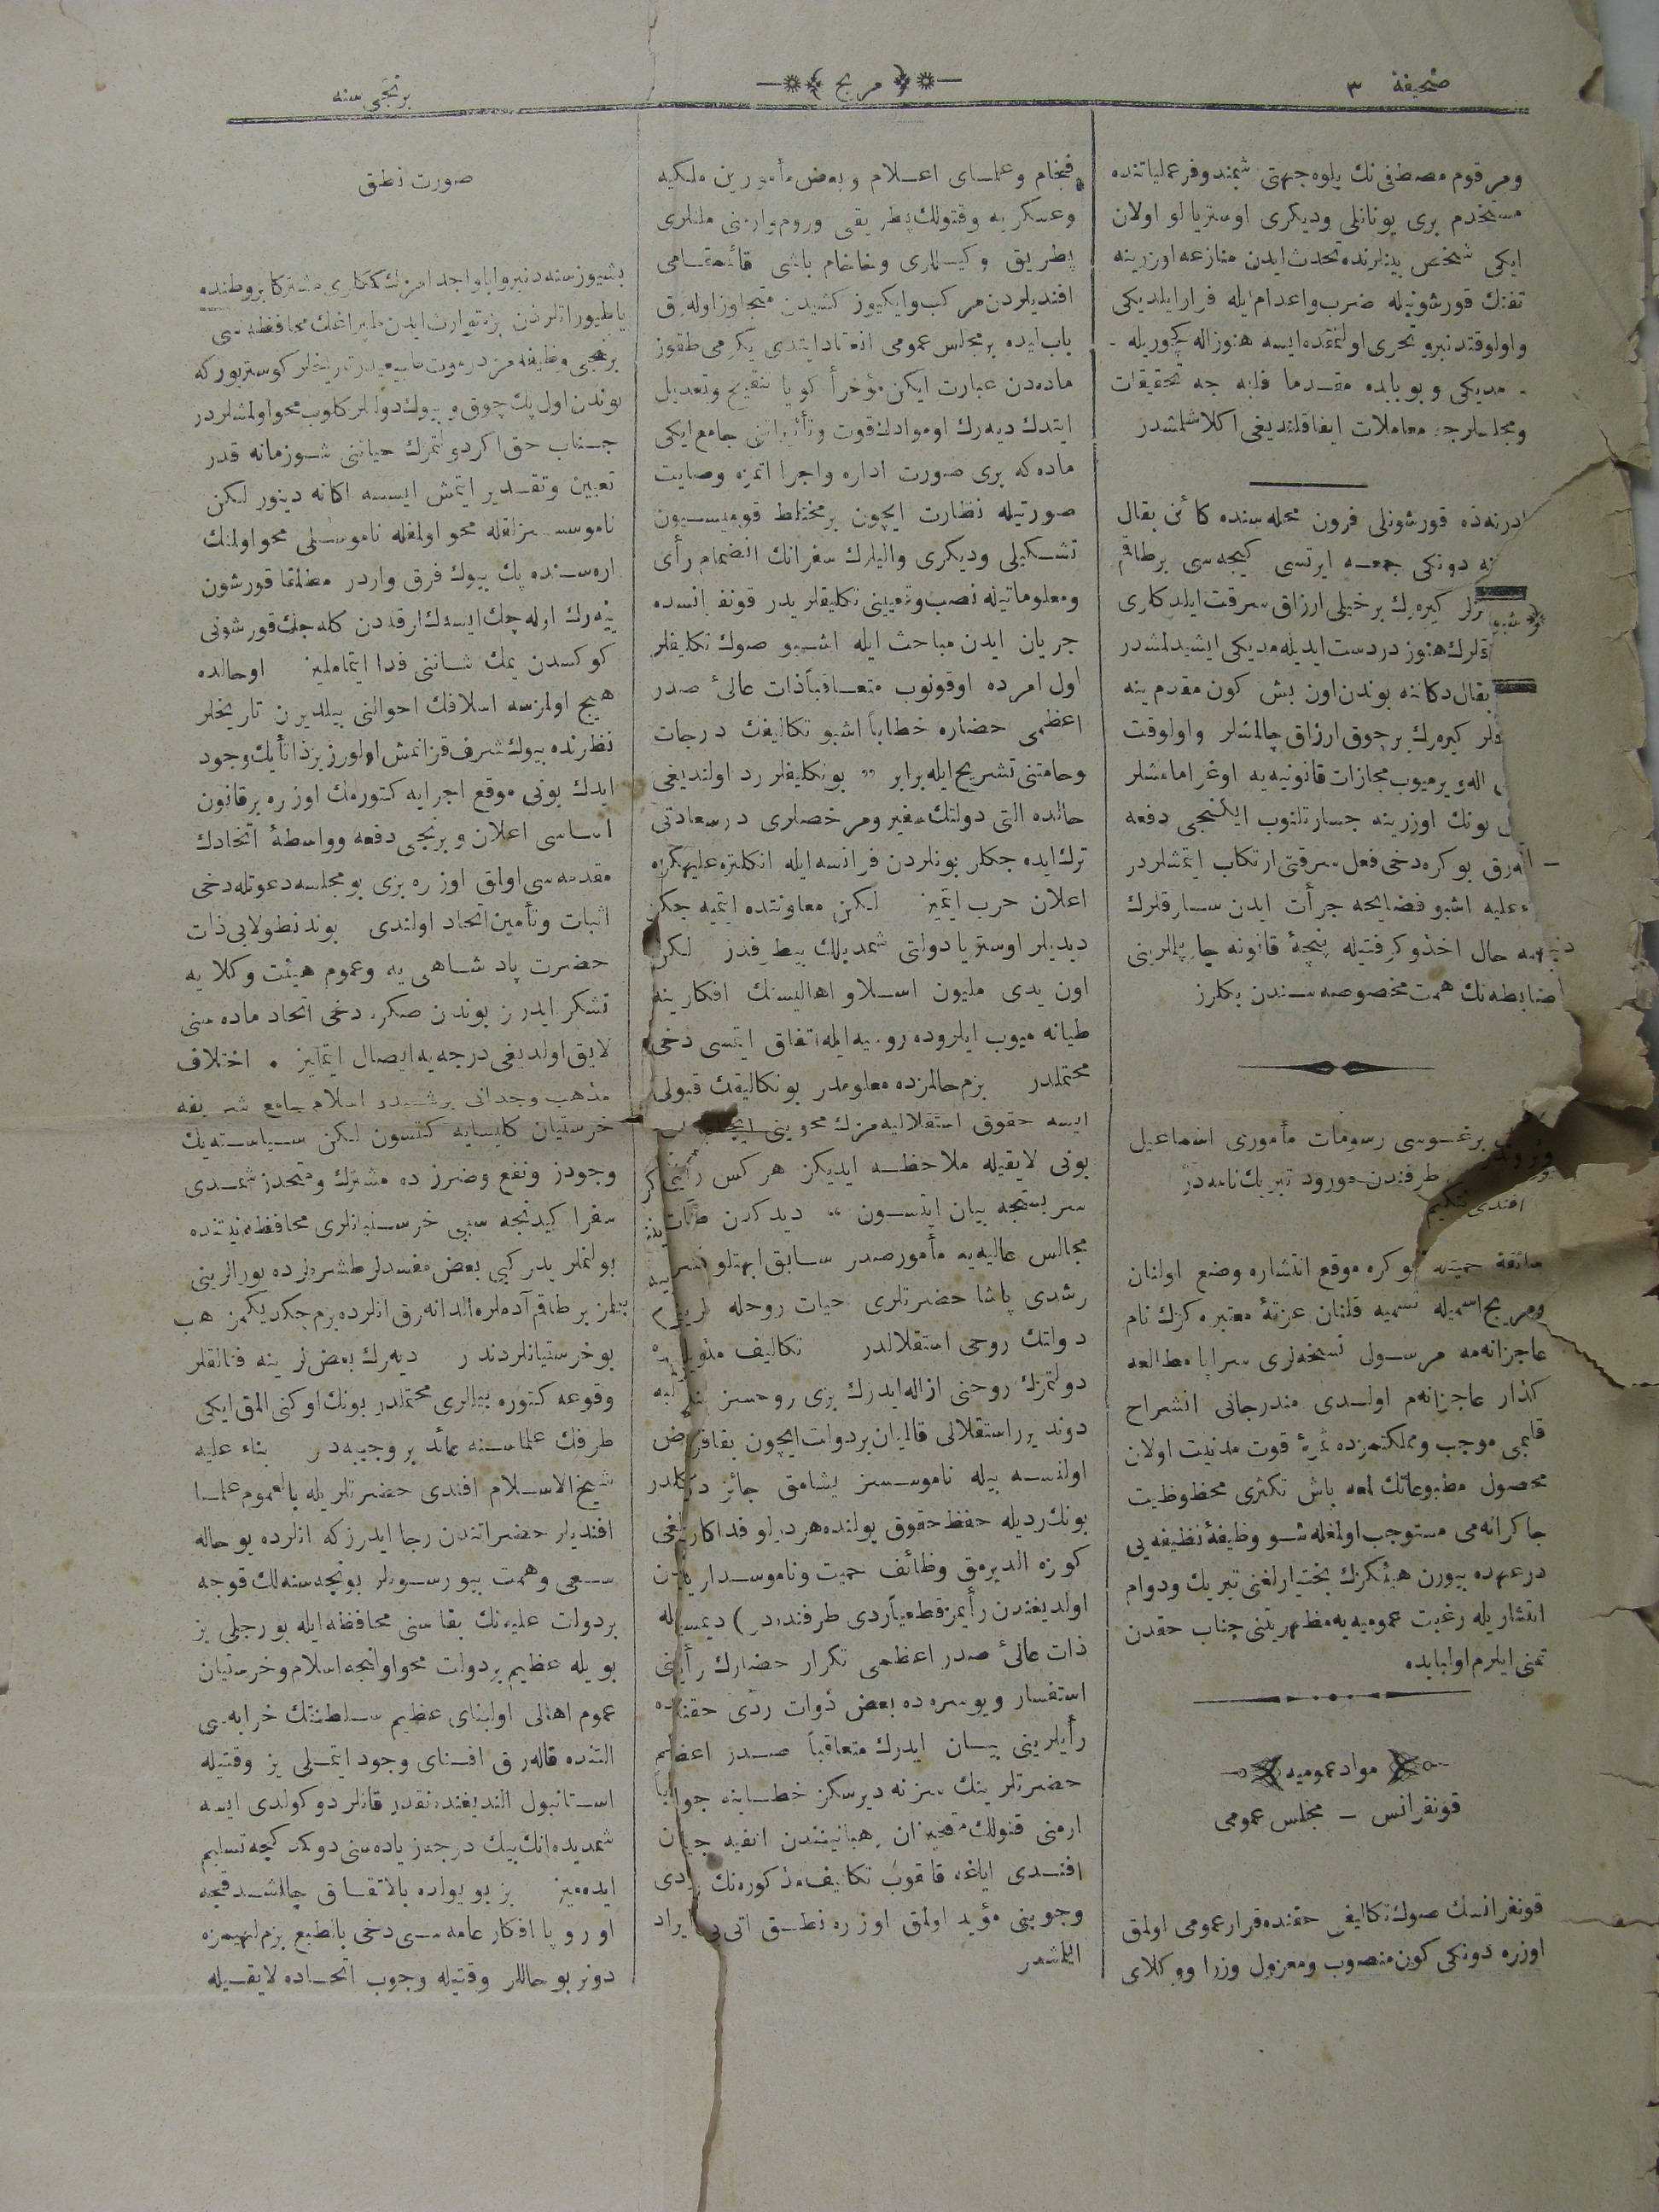 صحیفهٔ ٣
مریج
برنجی سنه
ومرقوم مصطفی نك پلوه جهتی شمندوفر عملیاتنده
مستخدم بری یونانلی ودیکری اوستریالو اولان
ایکی شخص بینلرنده تحدث ایدن منازعه اوزرینه
تفنك قورشونیله ضرب واعدام ایله فرار ایلدیکی
واولوقتدنبرو تحری اولنمقده ایسه هنوز اله کچوریله
مدیکی وبوبابده مقدما قلبه جه تحقیقات
ومجلسلرجه معاملات ایفا قلندیغی اکلاشلمشدر
ادرنه ده قورشونلی فرون محله سنده کائن بقال
نه دونکی جمعه ایرتسی کیجه سی برطاقم
کیره رك برخیلی ارزاق سرقت ایلدکاری
هنوز دردست ایدیله مدیکی ایشیدلمشدر
بقال دکاننه بوندن اون بش کون مقدم ینه
کیره رك برچوق ارزاق چالمشلر واولوقت
اله ویرمیوب مجازات قانونیه یه اوغرامامشلر
بونك اوزرینه جسارتلنوب ایکنجی دفعه
بوکره دخی فعل سرقتی ارتکاب ایتمشلردر
علیه اشبو فضایحه جرأت ایدن سارقلرك
حال اخذ وکرفتیله پنچهٔ قانونه چارپلملرینی
ضابطه نك همت مخصوصه سندن بکلرز
برغوسی رسومات مأموری اسماعیل
افندی طرفندن مورود تبریك نامه در
سائقهٔ حمیتله بوکره موقع انتشاره وضع اولنان
ومریج اسمیله تسمیه قلنان غزتهٔ معتبره کزك نام
عاجزانه مه مرسول نسخه لری سراپا مطالعه
کذار عاجزانه م اولدی مندرجاتی انشراح
قلبمی موجب ومملکتمزده ثمرهٔ قوت مدنیت اولان
محصول مطبوعاتك لمعه پاش تکثری محظوظیت
چاکرانه می مستوجب اولمغله شو وظیفهٔ نظیفه یی
درعهده بیورن هیئتکزك بختیارلغنی تبریك ودوام
انتشاریله رغبت عمومیه یه مظهریتنی جناب حقدن
تمنی ایلرم اولبابده
مواد عمومیه
قونفرانس – مجلس عمومی
قونفرانسك صوك تکالیفی حقنده قرار عمومی اولمق
اوزره دونکی کون منصوب ومعزول وزرا ووکلای
فخام وعلمای اعلام وبعض مأمورین ملکیه
وعسکریه وقتولك پطریقی وروم وارمنی ملتلری
پطریق وکیللری وخاخام باشی قائممقامی
افندیلردن مرکب وایکیوز کشیدن متجاوز اوله رق
باب عالیده برمجلس عمومی انعقاد ایتدی یکرمی طقوز
ماده دن عبارت ایکن مؤخراً کویا تنقیح وتعدیل
ایتدك دیه رك اوموادك قوت وتأثیراتنی جامع ایکی
ماده که بری صورت اداره واجرااتمزه وصایت
صورتیله نظارت ایچون برمختلط قومیسیون
تشکیلی ودیکری والیلرك سفرانك انضمام رأی
ومعلوماتیله نصب وتعیینی تکلیفلریدر قونفرانسده
جریان ایدن مباحث ایله اشبو صوك تکلیفلر
اول امرده اوقونوب متعاقباً ذات عالیٔ صدر
اعظمی حضاره خطاباً اشبو تکالیفك درجات
وخامتنی تشریح ایله برابر „ بوتکلیفلر رد اولندیغی
حالده التی دولتك سفیر ومرخصلری درسعادتی
ترك ایده جکلر بونلردن فرانسه ایله انکلتره علیهمزه
اعلان حرب ایتمیز لکن معاونتده ایتمیه جکز
دیدیلر اوستریا دولتی شمدیلك بیطرفدر لکن
اون یدی ملیون اسلاو اهالیسنك افکارینه
طیانه میوب ایلروده روسیه ایله اتفاق ایتمسی دخی
محتملدر بزم حالمزده معلومدر بوتکالیفك قبولی
ایسه حقوق استقلالیه مزك محوینی
بونی لایقیله ملاحظه ایدیکز هرکس رأینی
سربستجه بیان ایتسون “ دیدکدن
مجالس عالیه یه مأمور صدر سابق ابهتلو
رشدی پاشا حضرتلری حیات روحله
دولتك روحی استقلالدر تکالیف
دولتمزك روحنی ازاله ایدرك بزی روحسز
دوندیرر استقلالی قالمیان بردولت ایچون بقا فرض
اولنسه بیله ناموسسز یشامق جائز دکلدر
بونك ردیله حفظ حقوق یولنده هر درلو فداکارلغی
کوزه الدیرمق وظائف حمیت وناموسداریدن
اولدیغندن رأیمز قطعیاً ردی طرفنده در ) دیمسیله
ذات عالیٔ صدر اعظمی تکرار حضارك رأینی
استفسار وبوسره ده بعض ذوات ردی حقنده
رأیلرینی بیان ایدرك متعاقباً صدر اعظم
حضرتلرینك سز نه دیرسکز خطابنه جواباً
ارمنی قتولك رهبانیندن انفیه جیان
افندی ایاغه قالقوب تکالیف مذکوره نك ردی
وجوبنی مؤید اولمق اوزره نطق اتی یی ایراد
ایلمشدر
صورت نطق
بشیوز سنه دنبرو ابا واجدادمزك کمکلری مشترکا بر وطنده
یاطیور انلردن بزه توارث ایدن طپراغك محافظه سی
برنجی وظیفه مزدر موت طبیعیدر تاریخلر کوستریورکه
بوندن اول پك چوق وبیوك دولتلر کلوب محو اولمشلردر
جناب حق اکر دولتمزك حیاتنی شو زمانه قدر
تعیین وتقدیر ایتمش ایسه اکانه دینور لکن
ناموسسزلقله محو اولمغله ناموسلی محو اولمنك
اره سنده پك بیوك فرق واردر مطلقا قورشون
ییه رك اوله جك ایسه ك ارقه دن کله جك قورشونی
کوکسدن یمك شاننی فدا ایتمامليز اوحالده
هیچ اولمزسه اسلافك احوالنی بیلدیرن تاریخلر
نظرنده بیوك شرف قزانمش اولورز بز ذاتاً یك وجود
ایدك بونی موقع اجرایه کتورمك اوزره برقانون
اساسی اعلان وبرنجی دفعه وواسطهٔ اتحادك
مقدمه سی اولمق اوزره بزی بومجلسه دعوتله دخی
اثبات وتأمین اتحاد اولندی بوندنطولایی ذات
حضرت پادشاهی یه وعموم هیئت وکلایه
تشکر ایدرز بوندن صکره دخی اتحاد ماده سنی
لایق اولدیغی درجه یه ایصال ایتملیز . اختلاف
مذهب وجدانی برشیدر اسلام جامع شریفه
خرستیان کلیسایه کتسون لکن سیاسته یك
وجودز ونفع وضرزده مشترك ومتحدز شمدی
سفرا کیدنجه سببی خرستیانلری محافظه نیتنده
بولنملریدر کبی بعض مفسدلر طشره لرده بورالرینی
بیلمز برطاقم آدملره الدانه رق انلرده بزم چکدیکمز هب
بوخرستیانلردندر دیه رك بعض لرینه فنالقلر
وقوعه کتوره بیلملری محتملدر بونك اوکنی المق ایکی
طرفك علماسنه عائد بر وجیبه در بناء علیه
شیخ الاسلام افندی حضرتلریله بالعموم علما
افندیلر حضراتندن رجا ایدرزکه انلرده بوحاله
سعی وهمت بیورسونلر بونجه سنه لك قوجه
بردولت علیه نك بقاسنی محافظه ایله بورجلی یز
بویله عظیم بردولت محو اولنجه اسلام وخرستیان
عموم اهالی اولبنای عظیم سلطنتك خرابه سی
التنده قاله رق افنای وجود ایتملی یز وقتیله
استانبول الندیغنده نقدر قانلر دوکولدی ایسه
شمدیده انك بیك درجه زیاده سنی دوکمد کچه تسلیم
ایده میز بز بویولده بالاتفاق چالشدقجه
اوروپا افکار عامه سی دخی بالطبع بزم لهیمزه
دونر بوحاللر وقتیله وجوب اتحاده لایقیله